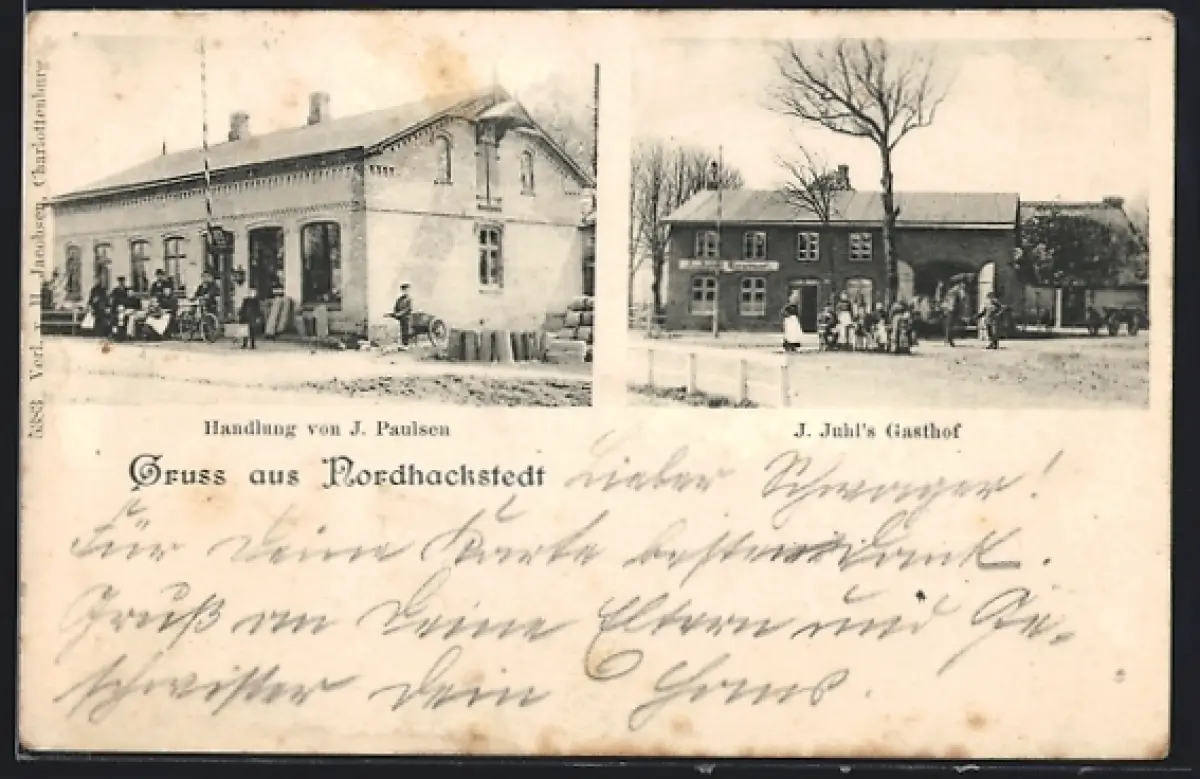 5383 Verl. v. H. Jacobsen, Charlottenburg
Handlung von J. Paulsen
J. Juhl's Gasthof
Gruss aus Nordhackstedt
Lieber Schwager!
Für Deine Karte besten Dank.
Gruß an Deine Eltern und Ge-
schwister Dein Hans.